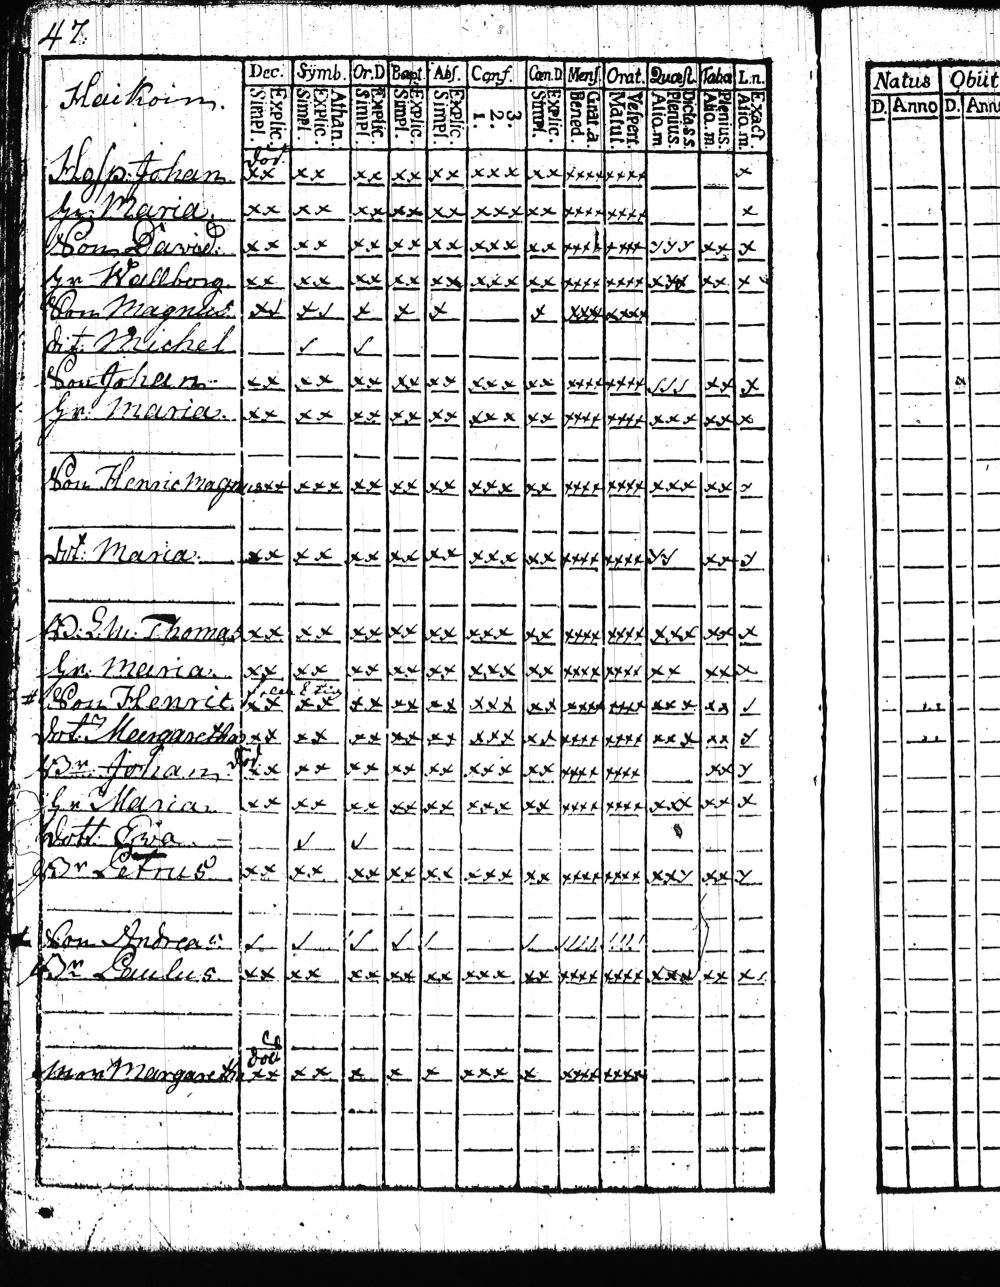 47.
Dec. Symb. Or.D Bapt Abs. Conf. Cœn.D. Mens. Orat. Quæst. Taba L.n.
Haikoin.
Explic. Simpl. Athan. Explic. Simpl. Explic. Simpl. Explic. Simpl. Explic. Simpl. 3. 2. 1. Explic. Simpl. Grat. a. Bened Vespert. Matut. Dicta s.s. Plenius Alio. m Plenius. Alio. m. Exact. Alio. m.
död.
Hosp. Johan xx xx xx xx xx xxx xx xxxx xxxx x
hr. Maria. xx xx xx xx xx xxx xx xxxx xxxx x
Son David. xx xx xx xx xx xxx xx xxxx xxxx yyy xx x
hr Wallborg. xx xx xx xx xx xxx xx xxxx xxxx xxx xx x
Son Magnus x x x x x xxxx xxxx
dit. Michel
Son Johan xx xx xx xx xx xxx xx xxxx xxxx xx x
hr. Maria. xx xx xx xx xx xxx xx xxxx xxxx xxx xx x
Son Henric Magnus xx xxx xx xx xx xxx xx xxxx xxxx xxx xx
Dot. Maria. xx xx xx xx xx xxx xx xxxx xxxx yy xx y
Thomas xx xx xx xx xx xxx xx xxxx xxxx xxx xx x
hr. Maria. xx xx xx xx xx xxx xx xxxx xxxx xx xx x
# Son Henric. xx xx xx xx xx xxx xx xxxx xxxx xxx xx
Dot. Margaretha xx xx xx xx xx xxx xx xxxx xxxx xxx xx y
död
Br. Johan xx xx xx xx xx xxx xx xxxx xxxx xx y
hr Maria. xx xx xx xx xx xxx xx xxxx xxxx xxx xx x
Dott. Ewa
Br Petrus xx xx xx xx xx xxx xx xxxx xxxx xxy xx y
Son Andreas
Br Paulus xx xx xx xx xx xxx xx xxxx xxxx xxx xx x
död
Mor Margaretha xx xx x x x xxx x xxxx xxxx
Natus Obiit
D. Anno D. Ann